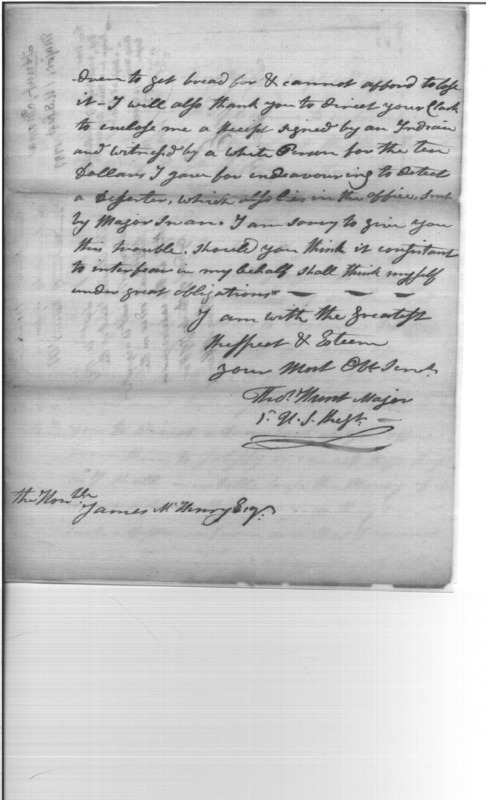 dren to get bread for & cannot afford to lose
it - I will also thank you to direct your Clerk
to enclose me a Receipt signed by an Indian
and witness'd by a white Person for the ten
Dollars I gave for endeavouring to detect
a Deserter, which also lies in the office, sent
by Major Swan. I am sorry to give you
this trouble. should you think it consistant
to interfear in my behalf shall think myself
under great obligations -
I am with the Greatest
Respect & Esteem
your Most Obt Servt
Thos. Hunt Major
1st U.S. Regt.
The Honble
James McHenry Esqr.